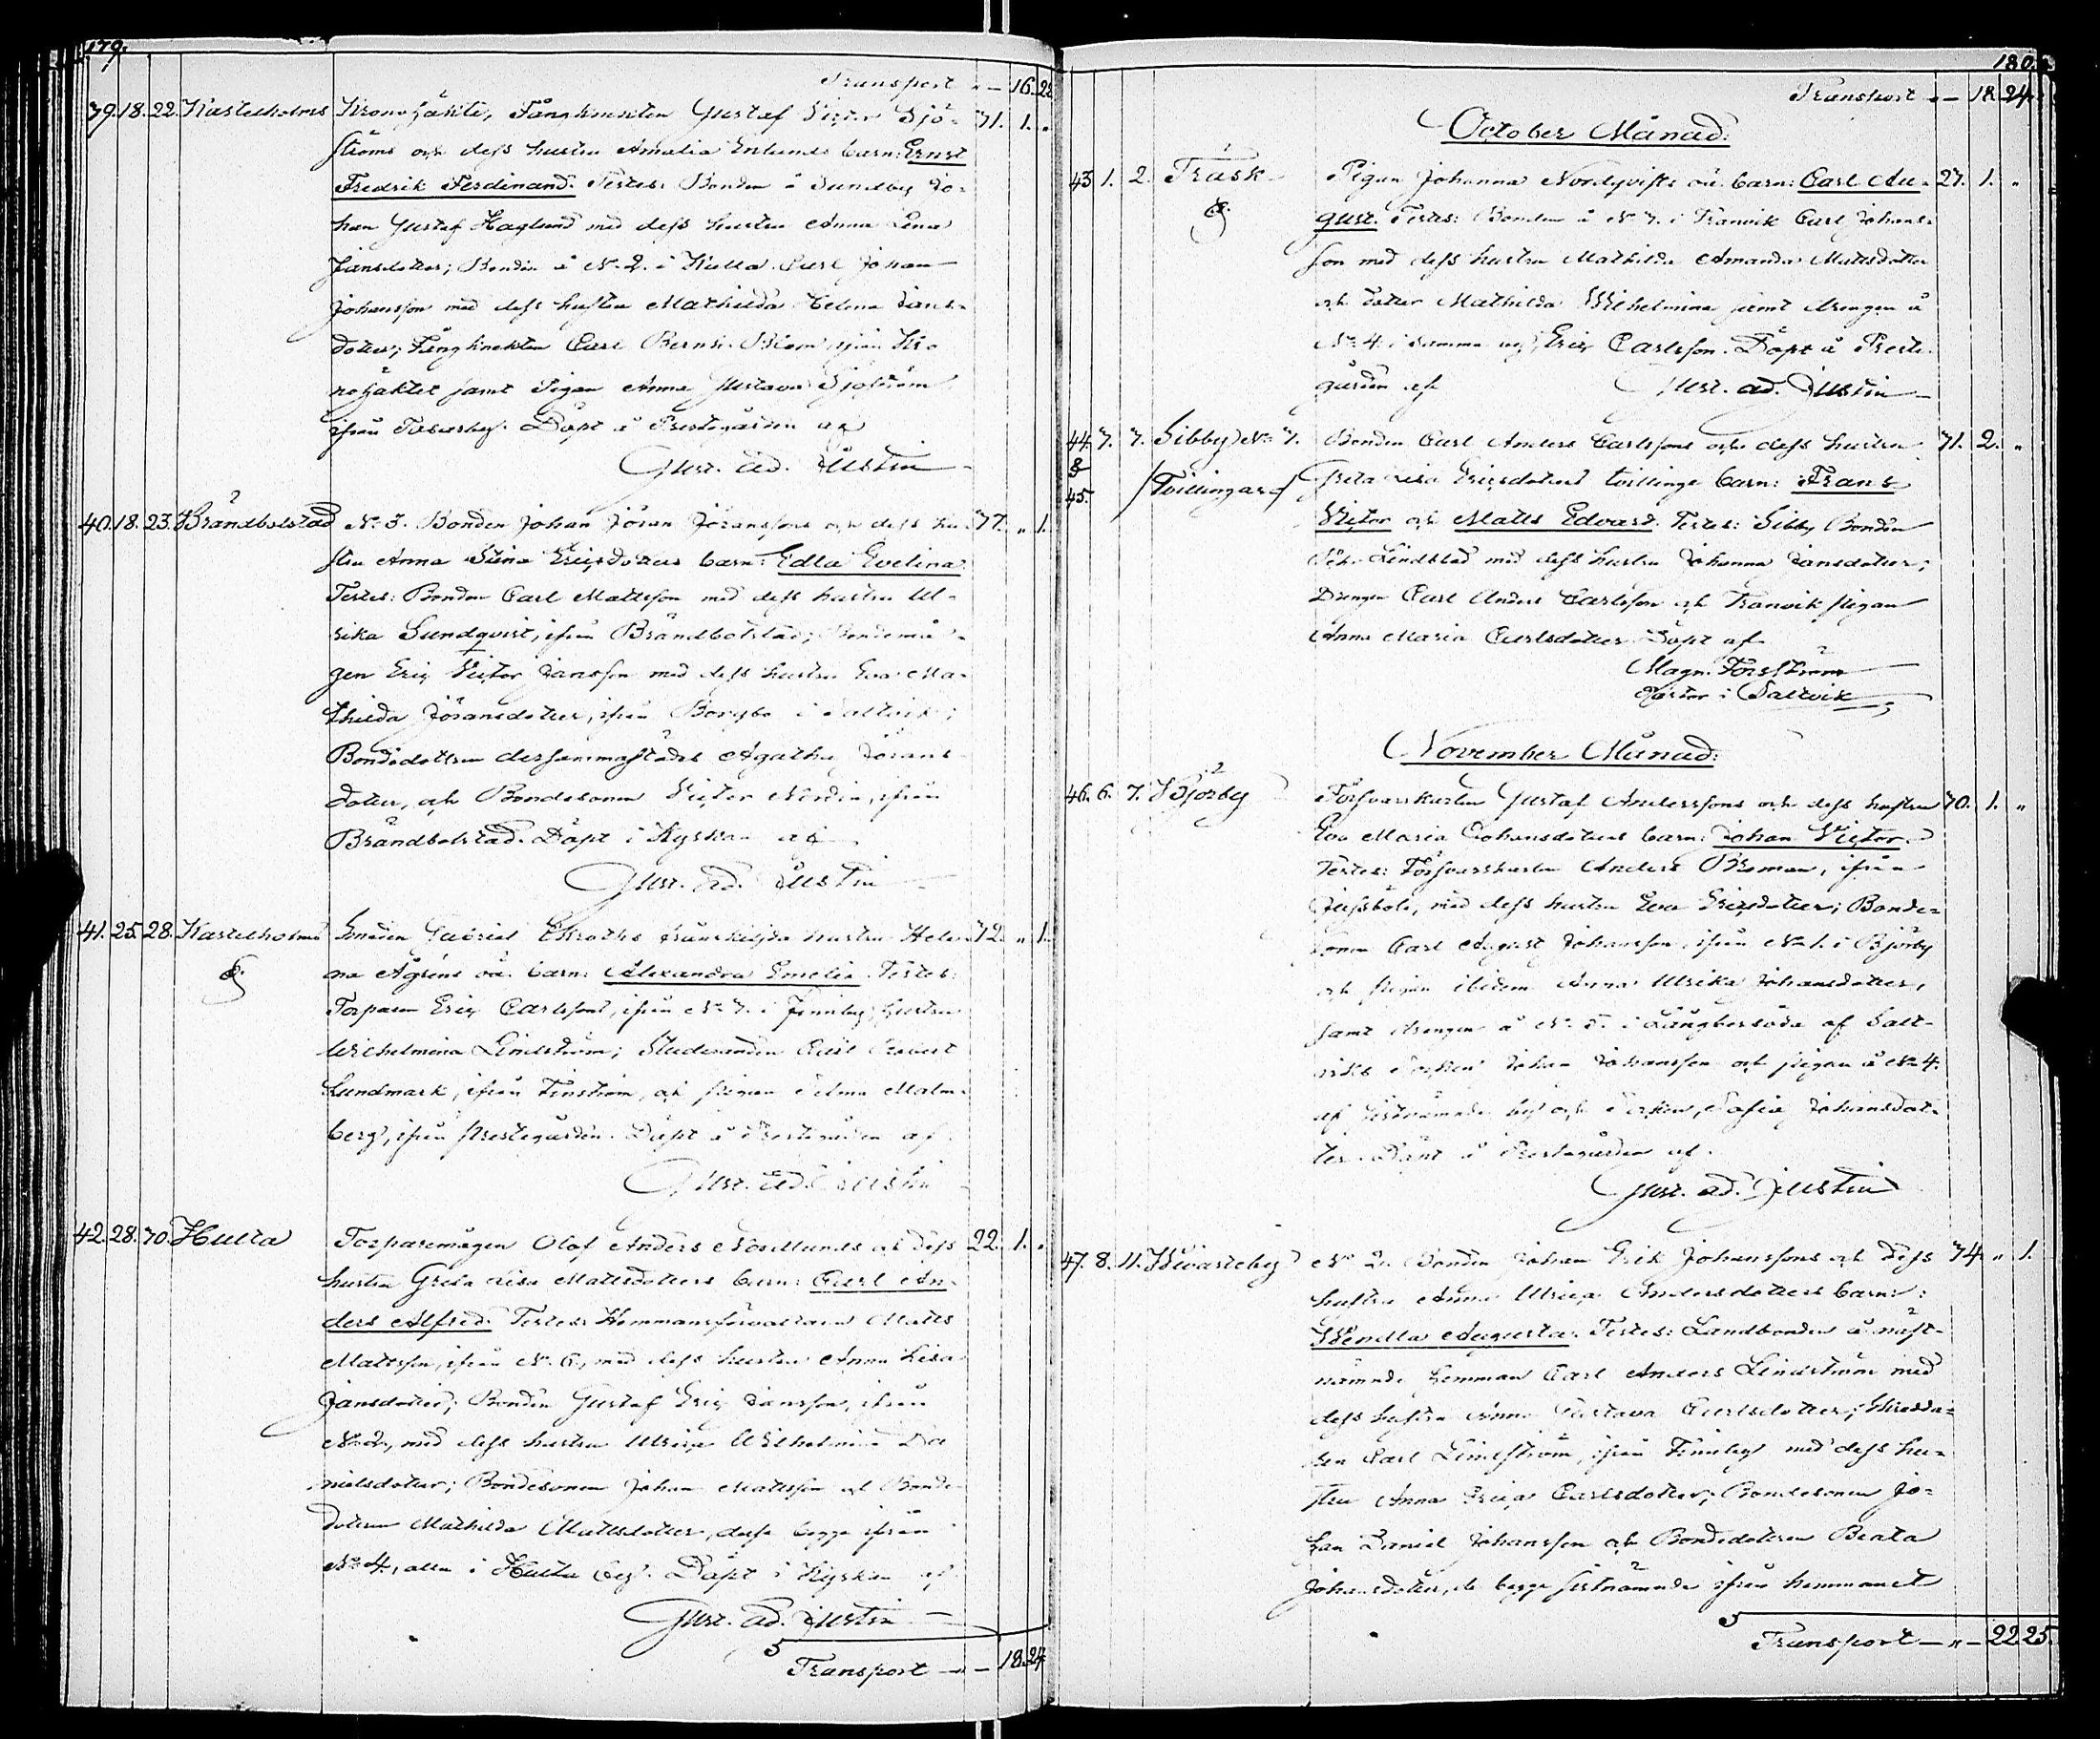 179.
Transport — 16. 22
39. 18. 22. Kastelholms Kronohäkte, Fångknekten Gustaf Victor Sjö- 31. 1. „
ströms och dess hustru Amalia Enlunds barn: Ernst
Fredrik Ferdinand. Testes: Bonden å Sundby Jo-
han Gustaf Haglund med dess hustru Anna Lena
Jansdotter; Bonden å No 2. i Hulta Carl Johan
Johansson med dess hustru Mathilda Helena Jans-
dotter; Fångknekten Carl Blom, ifrån Kro-
nohäktet samt Pigan Anna Gustava Sjöström
ifrån Tosarby. Döpt å Prestegården af
Gust. Ad. Justin
40. 18. 23. Brändbolstad No 3. Bonden Johan Jöran Jöranssons och dess hu- 37. „ 1.
stru Anna Stina Ericsdotters barn: Edla Evelina.
Testes: Bonden Carl Mattsson med dess hustru Ul-
rika Sundqvist, ifrån Brändbolstad; Bondemå-
gen Eric Victor Jansson med dess hustru Eva Ma-
thilda Jöransdotter, ifrån Borgbo i Saltvik;
Bondedottren dersammastädes Agatha Jörans-
dotter, och Bondesonen Victor Nordin, ifrån
Brändbolstad. Döpt i Kyrkan af
Gust. Ad. Justin
41. 25. 28. Kastelholms Smeden Gabriel frånskiljda hustru Hele- 42. „ 1.
na Ågrens oä. barn: Alexandra Emelia. Testes:
Torparen Eric Carlsson, ifrån No 7. i Finnby, hustru
Wilhelmina Lindström; Studeranden Carl Robert
Lundmark, ifrån Finström, och pigan Selma Malm-
berg, ifrån prestegården. Döpt å Prestegården af
Gust. Ad. Justin
42. 28. 30. Hulta Torparemågen Olof Anders Nordlunds och dess 22. 1. „
hustru Greta Lisa Mattsdotters barn: Carl An-
ders Alfred. Testes: Hemmansförvaltaren Matts
Mattsson, ifrån No 6, med dess hustru Anna Lisa
Jansdotter; Bonden Gustaf Eric Jansson, ifrån
No 2, med dess hustru Ulrica Wilhelmina Da-
nielsdotter; Bondesonen Johan Mattsson och Bonde-
dottren Mathilda Mattsdotter, dessa begge ifrån
No 4, alla i Hulta by. Döpt i Kyrkan af
Gust. Ad. Justin
Transport — „ — 18. 24.
180.
Transport — 18 24.
October Månad:
43. 1. 2. Träsk Pigan Johanna Nordqvists oä. barn: Carl Au- 27. 1. „
gust. Testes: Bonden å No 7. i Tranvik Carl Johans-
son med dess hustru Mathilda Amanda Mattsdotter
och dotter Mathilda Wilhelmina samt drengen å
No 4. i samma by, Eric Carlsson. Döpt å Preste-
gården af Gust. Ad. Justin
44. 7. 7. Sibby No 7. Bonden Carl Anders Carlssons och dess hustru 31. 2. „
&
45. /Tvillingar/ Greta Lisa Ericsdotters tvillinge barn: Frans
Victor och Matts Edvard. Testes: Sibby Bonden
Joh. Lindblad med dess hustru Johanna Jansdotter;
Drengen Carl Anders Carlsson och Tranvik pigan
Anna Maria Carlsdotter. Döpt af
Magn. Forsström
Pastor i Saltvik
November Månad:
46. 6. 7. Björby Försvarskarlen Gustaf Anderssons och dess hustru 30. 1. „
Eva Maria Johansdotters barn: Johan Victor.
Testes: Försvarskarlen Anders Öhman, ifrån
Jussböle, med dess hustru Eva Ericsdotter; Bonde-
sonen Carl August Johansson, ifrån No 1. i Björby
och pigan ibidem Anna Ulrika Johansdotter,
samt drengen å No 5. i Långbersöda af Salt-
viks Socken Johan Johansson och pigan å No 4.
af sistnämnde by och Socken, Sofia Johansdot-
ter. Döpt å Prestegården af
Gust. Ad. Justin
47. 8. 11. Kvarteby No 2. Bonden Johan Erik Johanssons och dess 34. „ 1.
hustru Anna Ulrica Andersdotters barn:
Wendla Augusta. Testes: Landbonden å näst-
nämnde hemman Carl Anders Lindström med
dess hustru Anna Gustava Carlsdotter; Skredda-
ren Carl Lindström, ifrån Finnby med dess hu-
stru Anna Erica Carlsdotter; Bondesonen Jo-
han Daniel Johansson och Bondedottren Beata
Johansdotter, de begge sistnämnde ifrån hemmanet
Transport — „ — 22 25.